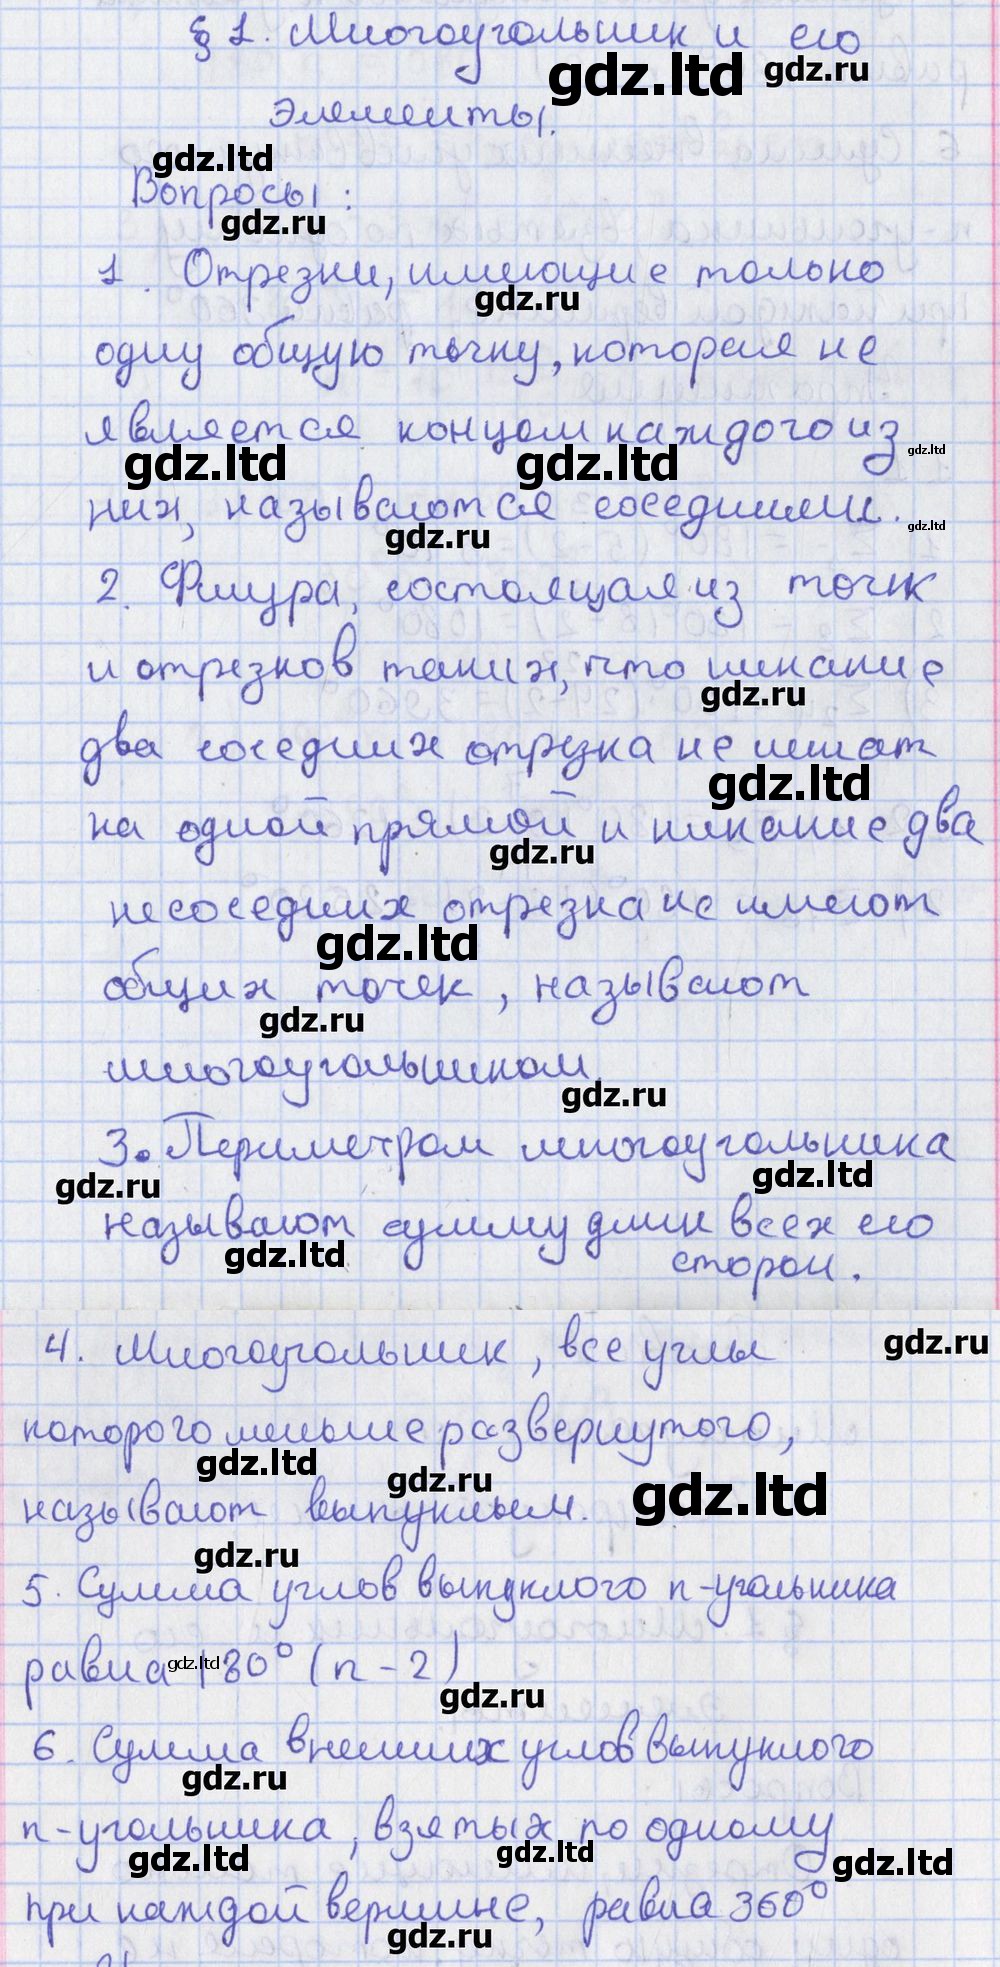 § 1. Многоугольник и его
gdz.ltd gdz.ru
элементы.
gdz.ltd
Вопросы:
gdz.ru
1. Отрезки, имеющие только
gdz.ru
одну общую точку, которая не
является концом каждого из
gdz.ltd gdz.ltd gdz.ltd
них, называются соседними.
gdz.ru gdz.ltd
2. Фигура, состоящая из точек
и отрезков таких, что никакие
gdz.ru
два соседних отрезка не лежат
gdz.ltd
на одной прямой и никакие два
gdz.ru
несоседних отрезка не имеют
gdz.ltd
общих точек, называют
gdz.ru
многоугольником
gdz.ru
3. Периметром многоугольника
gdz.ru gdz.ltd
называют сумму длин всех его
gdz.ltd
сторон.
4. Многоугольник, все углы
gdz.ru
которого меньше развернутого,
gdz.ltd gdz.ru gdz.ltd
называют выпуклым.
gdz.ru
5. Сумма углов выпуклого n-угольника
равна 180° (n-2)
gdz.ltd
gdz.ru
6. Сумма внешних углов выпуклого
gdz.ru
n-угольника, взятых по одному
gdz.ltd gdz.ru gdz.ltd
при каждой вершине, равна 360°
gdz.ru